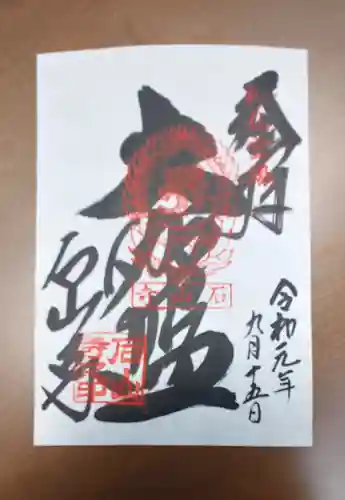 奉拝
令和元年
九月十五日
大伽藍
石山寺
石山寺
石山寺印